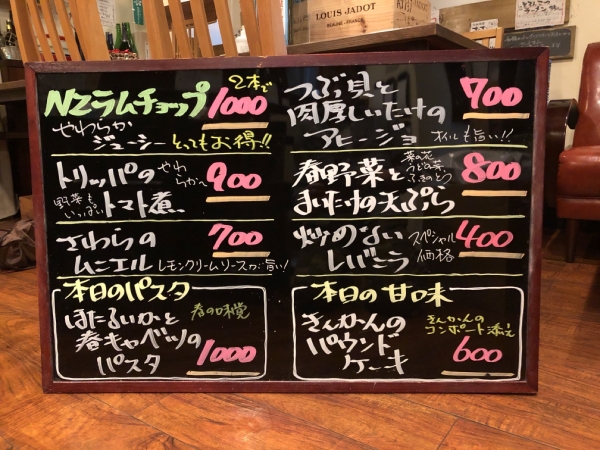 LOUIS JADOT
BEAUNE - FRANCE
NZラムチョップ
2本で
1000
やわらか
ジューシー とってもお得!!
トリッパの やわらか〜
900
野菜も いっぱい
トマト煮
さわらの
700
ムニエル レモンクリームソースが旨い!
本日のパスタ
ほたるいかと
春の味覚
春キャベツの
パスタ
1000
つぶ貝と
700
肉厚しいたけの
アヒージョ オイルも旨い!!
春野菜と
菜の花
うどの芽
ふきのとう
800
まいたけの天ぷら
炒めない
スペシャル
価格
400
レバニラ
本日の甘味
きんかんの
きんかんの
コンポート添え
パウンド
ケーキ
600